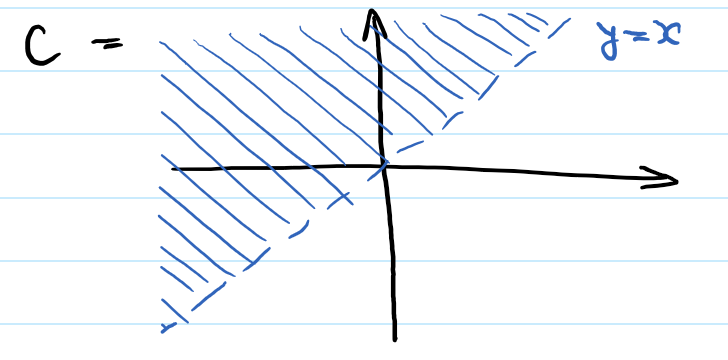 C =
y=x